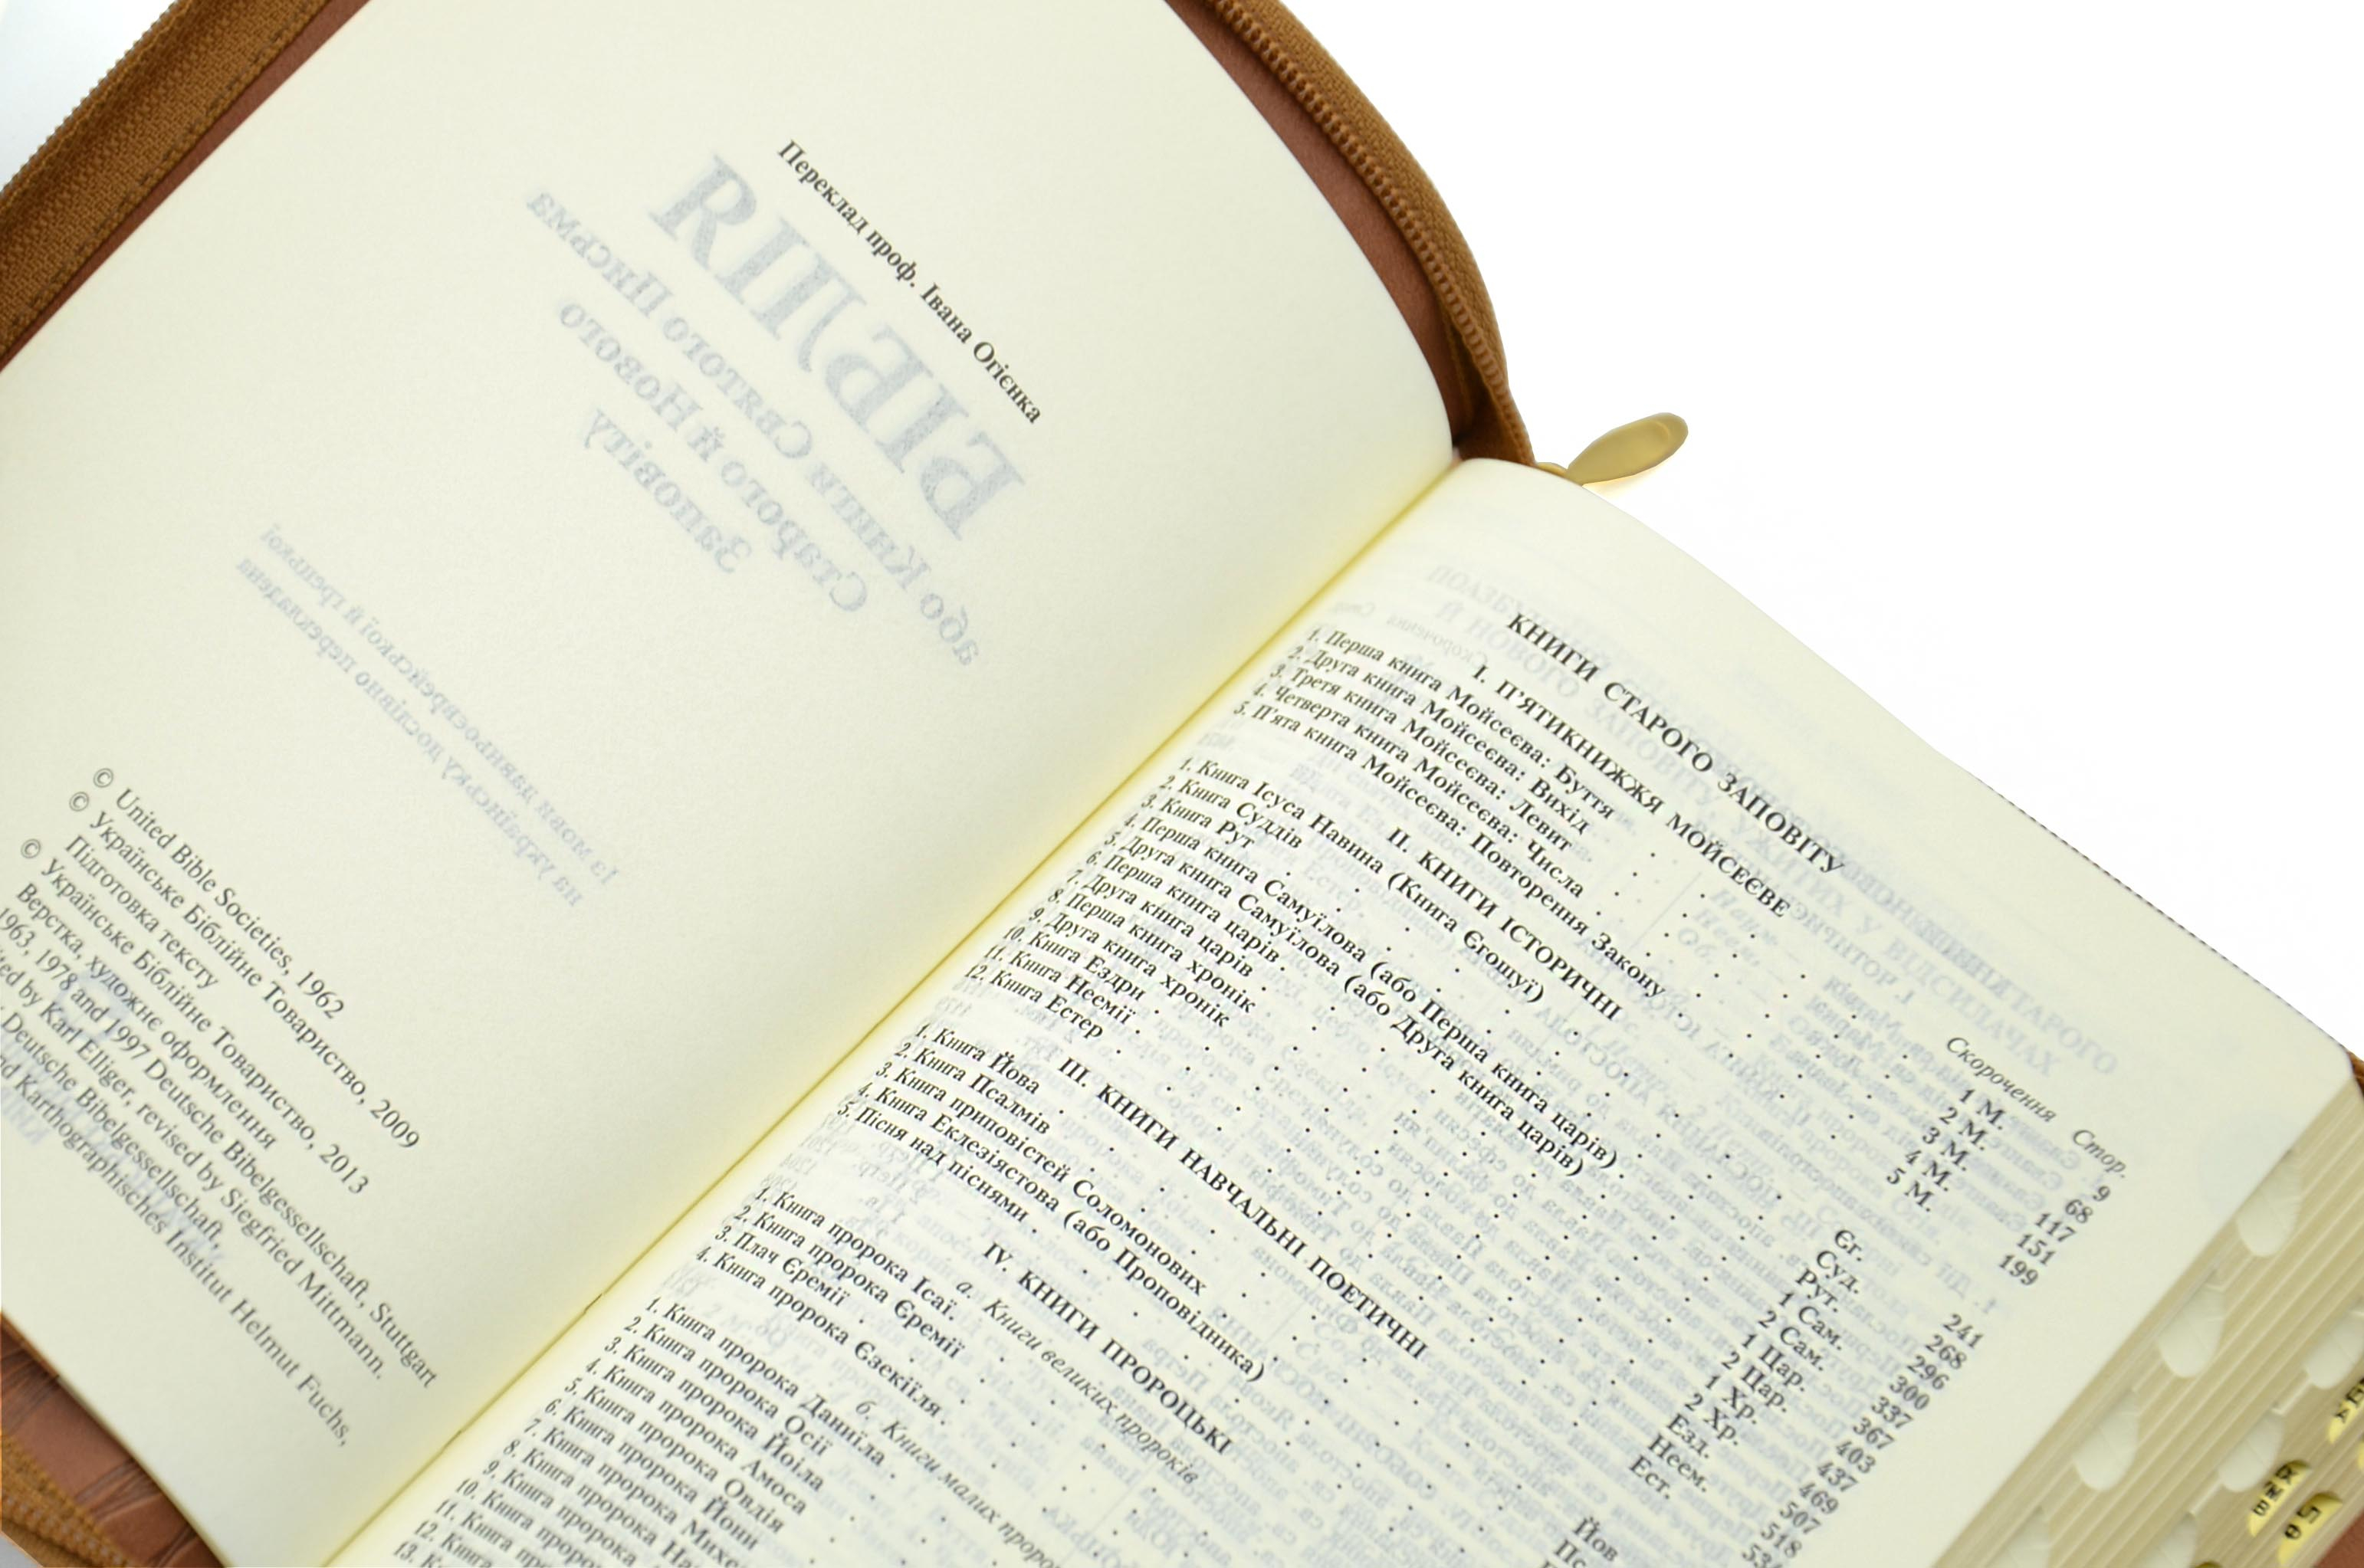 Переклад проф. Івана Огієнка
© United Bible Societies, 1962
© Українське Біблійне Товариство, 2009
Підготовка тексту
© Українське Біблійне Товариство, 2013
Верстка, художнє оформлення
1963, 1978 and 1997 Deutsche Bibelgesellschaft, Stuttgart
by Karl Elliger, revised by Siegfried Mittmann.
Deutsche Bibelgesellschaft,
Karthographisches Institut Helmut Fuchs,
КНИГИ СТАРОГО ЗАПОВІТУ
Скорочення Стор.
І. П'ЯТИКНИЖЖЯ МОЙСЕЄВЕ
1. Перша книга Мойсеєва: Буття . . . 1 М. 9
2. Друга книга Мойсеєва: Вихід . . . 2 М. 68
3. Третя книга Мойсеєва: Левит . . . 3 М. 117
4. Четверта книга Мойсеєва: Числа . . . 4 М. 151
5. П'ята книга Мойсеєва: Повторення Закону . . . 5 М. 199
ІІ. КНИГИ ІСТОРИЧНІ
1. Книга Ісуса Навина (Книга Єгошуї) . . . Єг. 241
2. Книга Суддів . . . Суд. 268
3. Книга Рут . . . Рут. 296
4. Перша книга Самуїлова (або Перша книга царів) . . . 1 Сам. 300
5. Друга книга Самуїлова (або Друга книга царів) . . . 2 Сам. 337
6. Перша книга царів . . . 1 Цар. 367
7. Друга книга царів . . . 2 Цар. 403
8. Перша книга хронік . . . 1 Хр. 437
9. Друга книга хронік . . . 2 Хр. 469
10. Книга Ездри . . . Езд. 507
11. Книга Неемії . . . Неем. 518
12. Книга Естер . . . Ест.
ІІІ. КНИГИ НАВЧАЛЬНІ ПОЕТИЧНІ
1. Книга Йова . . . Йов
2. Книга Псалмів
3. Книга приповістей Соломонових
4. Книга Еклезіястова (або Проповідника)
5. Пісня над піснями
IV. КНИГИ ПРОРОЦЬКІ
а. Книги великих пророків
1. Книга пророка Ісаї
2. Книга пророка Єремії
3. Плач Єремії
4. Книга пророка Єзекіїля
б. Книги малих
1. Книга пророка Даниїла
2. Книга пророка Осії
3. Книга пророка Йоіла
4. Книга пророка Амоса
5. Книга пророка Овдія
6. Книга пророка Йони
7. Книга пророка
8. Книга пророка
9. Книга пророка
10. Книга
11. Книга
12.
13.